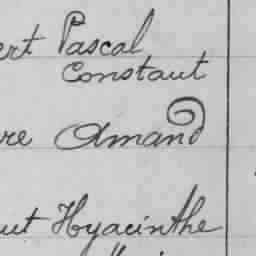 ert Pascal
Constant
re Amand
ut Hyacinthe